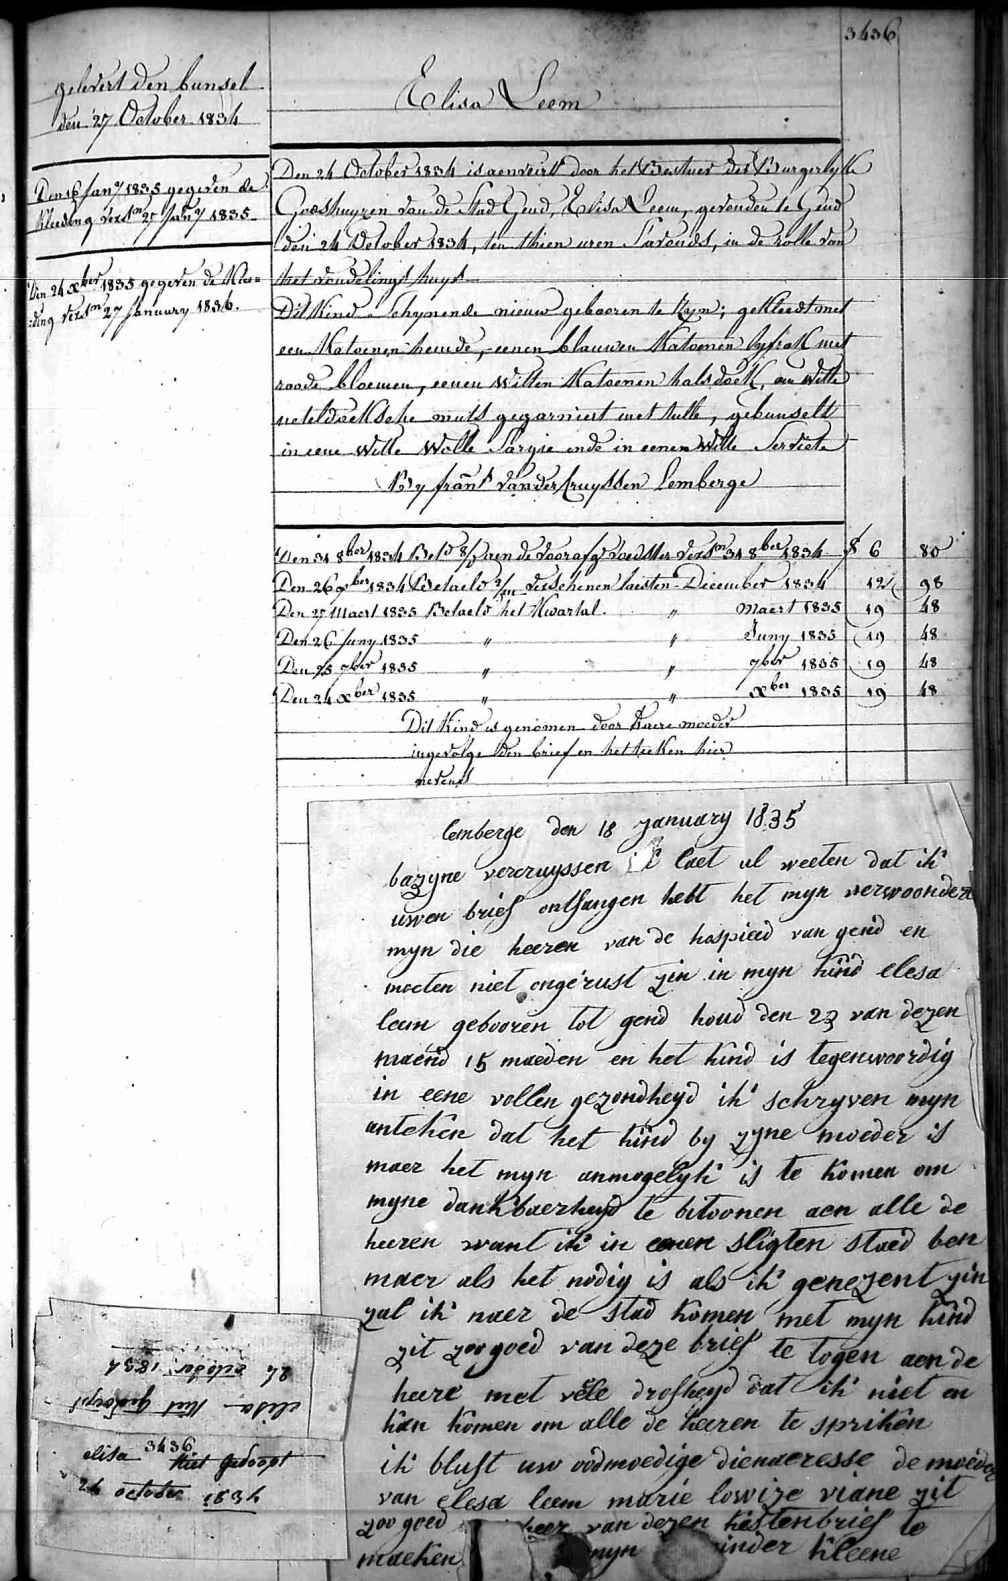 3436
gelevert den bunsel
den 27 October 1834
Elisa Leem
Den 16 Jany 1835 gegeven de
Kleeding verstn 27 Jany 1835
Den 24 xber 1835 gegeven de Klee-
:ding verstn 27 January 1836.
Den 24 October 1834 is aenveird door het Bestuer der Burgerlyke
Godshuyzen van de Stad Gend, Elisa Leem, gevonden te Gend
den 24 October 1834, ten thien uren S'avonds, in de rolle van
het vondelings huys
Dit Kind Schynende nieuw gebooren te Zyn; gekleedt met
een Katoenen hemde, eenen blauwen Katoenen lyfrok met
roode bloemen, eenen Witten Katoenen halsdoek, een Witte
neteldoeksche muts gegarniert met tulle, gebunselt
in eene Witte Wolle Sargie ende in eenen Witte Serviete
By frans Van der Cruyssen Lemberge
Den 31 8ber 1834 Betd aen de voorafg voedster verstn 31 8ber 1834 6 80
Den 26 xber 1834 Betaeld verschenen laesten December 1834 12 98
Den 27 Maert 1835 Betaeld het Kwartal. " Maert 1835 19 48
Den 26 Juny 1835 " " Juny 1835 19 48
Den 25 7ber 1835 " " 7ber 1835 19 48
Den 24 xber 1835 " " xber 1835 19 48
Dit Kind is genomen door haere moeder
ingevolge den brief en het teeken hier
nevens
lemberge den 18 january 1835
bazyne vercruyssen ik laet ul weeten dat ik
uwen brief ontfangen hebt het myn verwoondert
myn die heeren van de hospieed van gend en
moeten niet ongerust zin in myn kind elesa
leem gebooren tot gend houd den 23 van dezen
maend 15 maeden en het kind is tegenwoordig
in eene vollen gezondheyd ik schryven myn
anteken dat het kind by zyne moeder is
maer het myn anmogelyk is te komen om
myne dankbaerheyd te bitoonen aen alle de
heeren want ik in eenen sligten staed ben
maer als het nodig is als ik genezent zin
zal ik naer de stad komen met myn kind
zit zoo goed van deze brief te togen aen de
heere met vele drofheyd dat ik niet en
kan komen om alle de heeren te spriken
ik bluft uw oodmoedige dienaeresse de moeder
van elesa leem marie lowize viane zit
zoo goed heer van dezen kestenbrief te
maeken myn inder kleene
elisa Niet gedoopt
24 october 1834
3436
elisa Niet gedoopt
24 october 1834